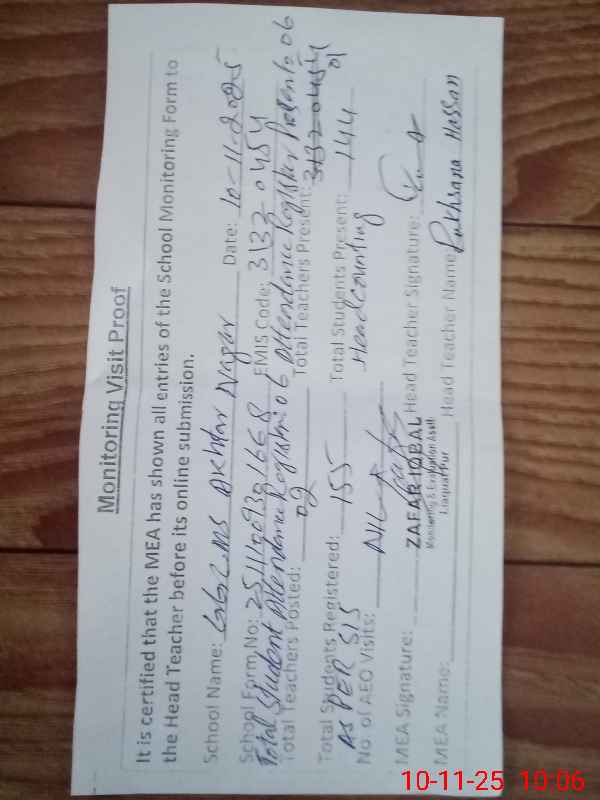 Monitoring Visit Proof
It is certified that the MEA has shown all entries of the School Monitoring Form to
the Head Teacher before its online submission.
School Name: GGCMS Akhtar Nagar Date: 10-11-2025
School Form No: EMIS Code: 3133-0454
Total Student Attendance Register 06 Attendance Register Present 06
Total Teachers Posted: 02 Total Teachers Present: 01
Total Students Registered: 155 Total Students Present: 144
AS PER SIS Head Counting
No. of AEO Visits: NIL
MEA Signature: Head Teacher Signature:
ZAFAR IQBAL
Monitoring & Evaluation Asstt
Liaquatpur
MEA Name: Head Teacher Name: Rukhsana Hassan
10-11-25 10:06